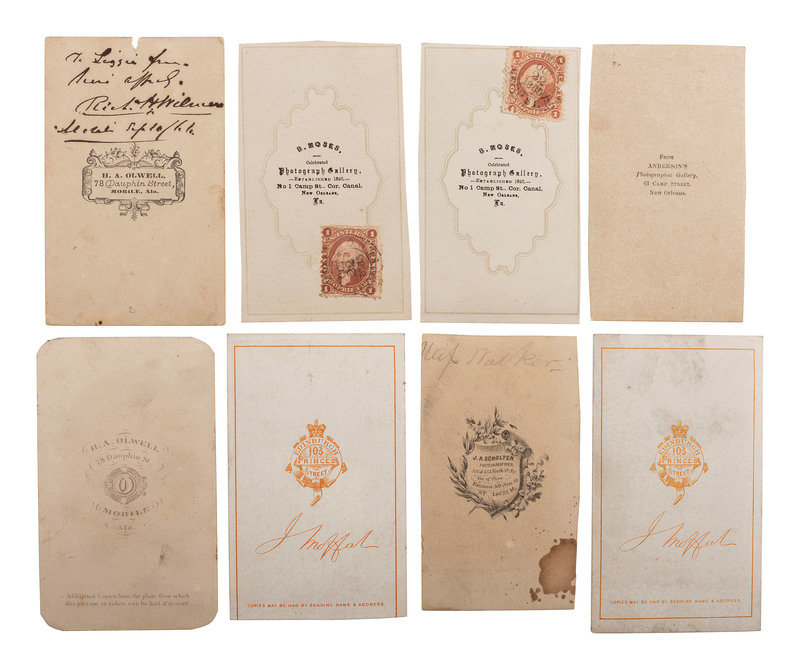 To Lizzie from
hers affcly.
Rich. H Wilmer
H. A. OLWELL,
78 Dauphin Street,
MOBILE, Ala.
B. MOSES,
Celebrated
Photograph Gallery,
ESTABLISHED 1840.
No 1 Camp St. Cor. Canal.
NEW ORLEANS,
La.
1
1
1
1
B. MOSES,
Celebrated
Photograph Gallery,
ESTABLISHED 1840.
No 1 Camp St. Cor. Canal.
NEW ORLEANS,
La.
1
1
1
1
FROM
ANDERSON'S
Photographic Gallery,
61 CAMP STREET,
New Orleans.
H. A. OLWELL
78 Dauphin St
MOBILE
Ala
Additional Copies from the plate from which
this picture is taken can be had if desired
EDINBURGH
103
PRINCES
STREET
J Moffat
COPIES MAY BE HAD BY SENDING NAME & ADDRESS.
Walker
J. A. SCHOLTEN
PHOTOGRAPHER
Cor of Olive
ST. LOUIS Mo.
EDINBURGH
103
PRINCES
STREET
J Moffat
COPIES MAY BE HAD BY SENDING NAME & ADDRESS.